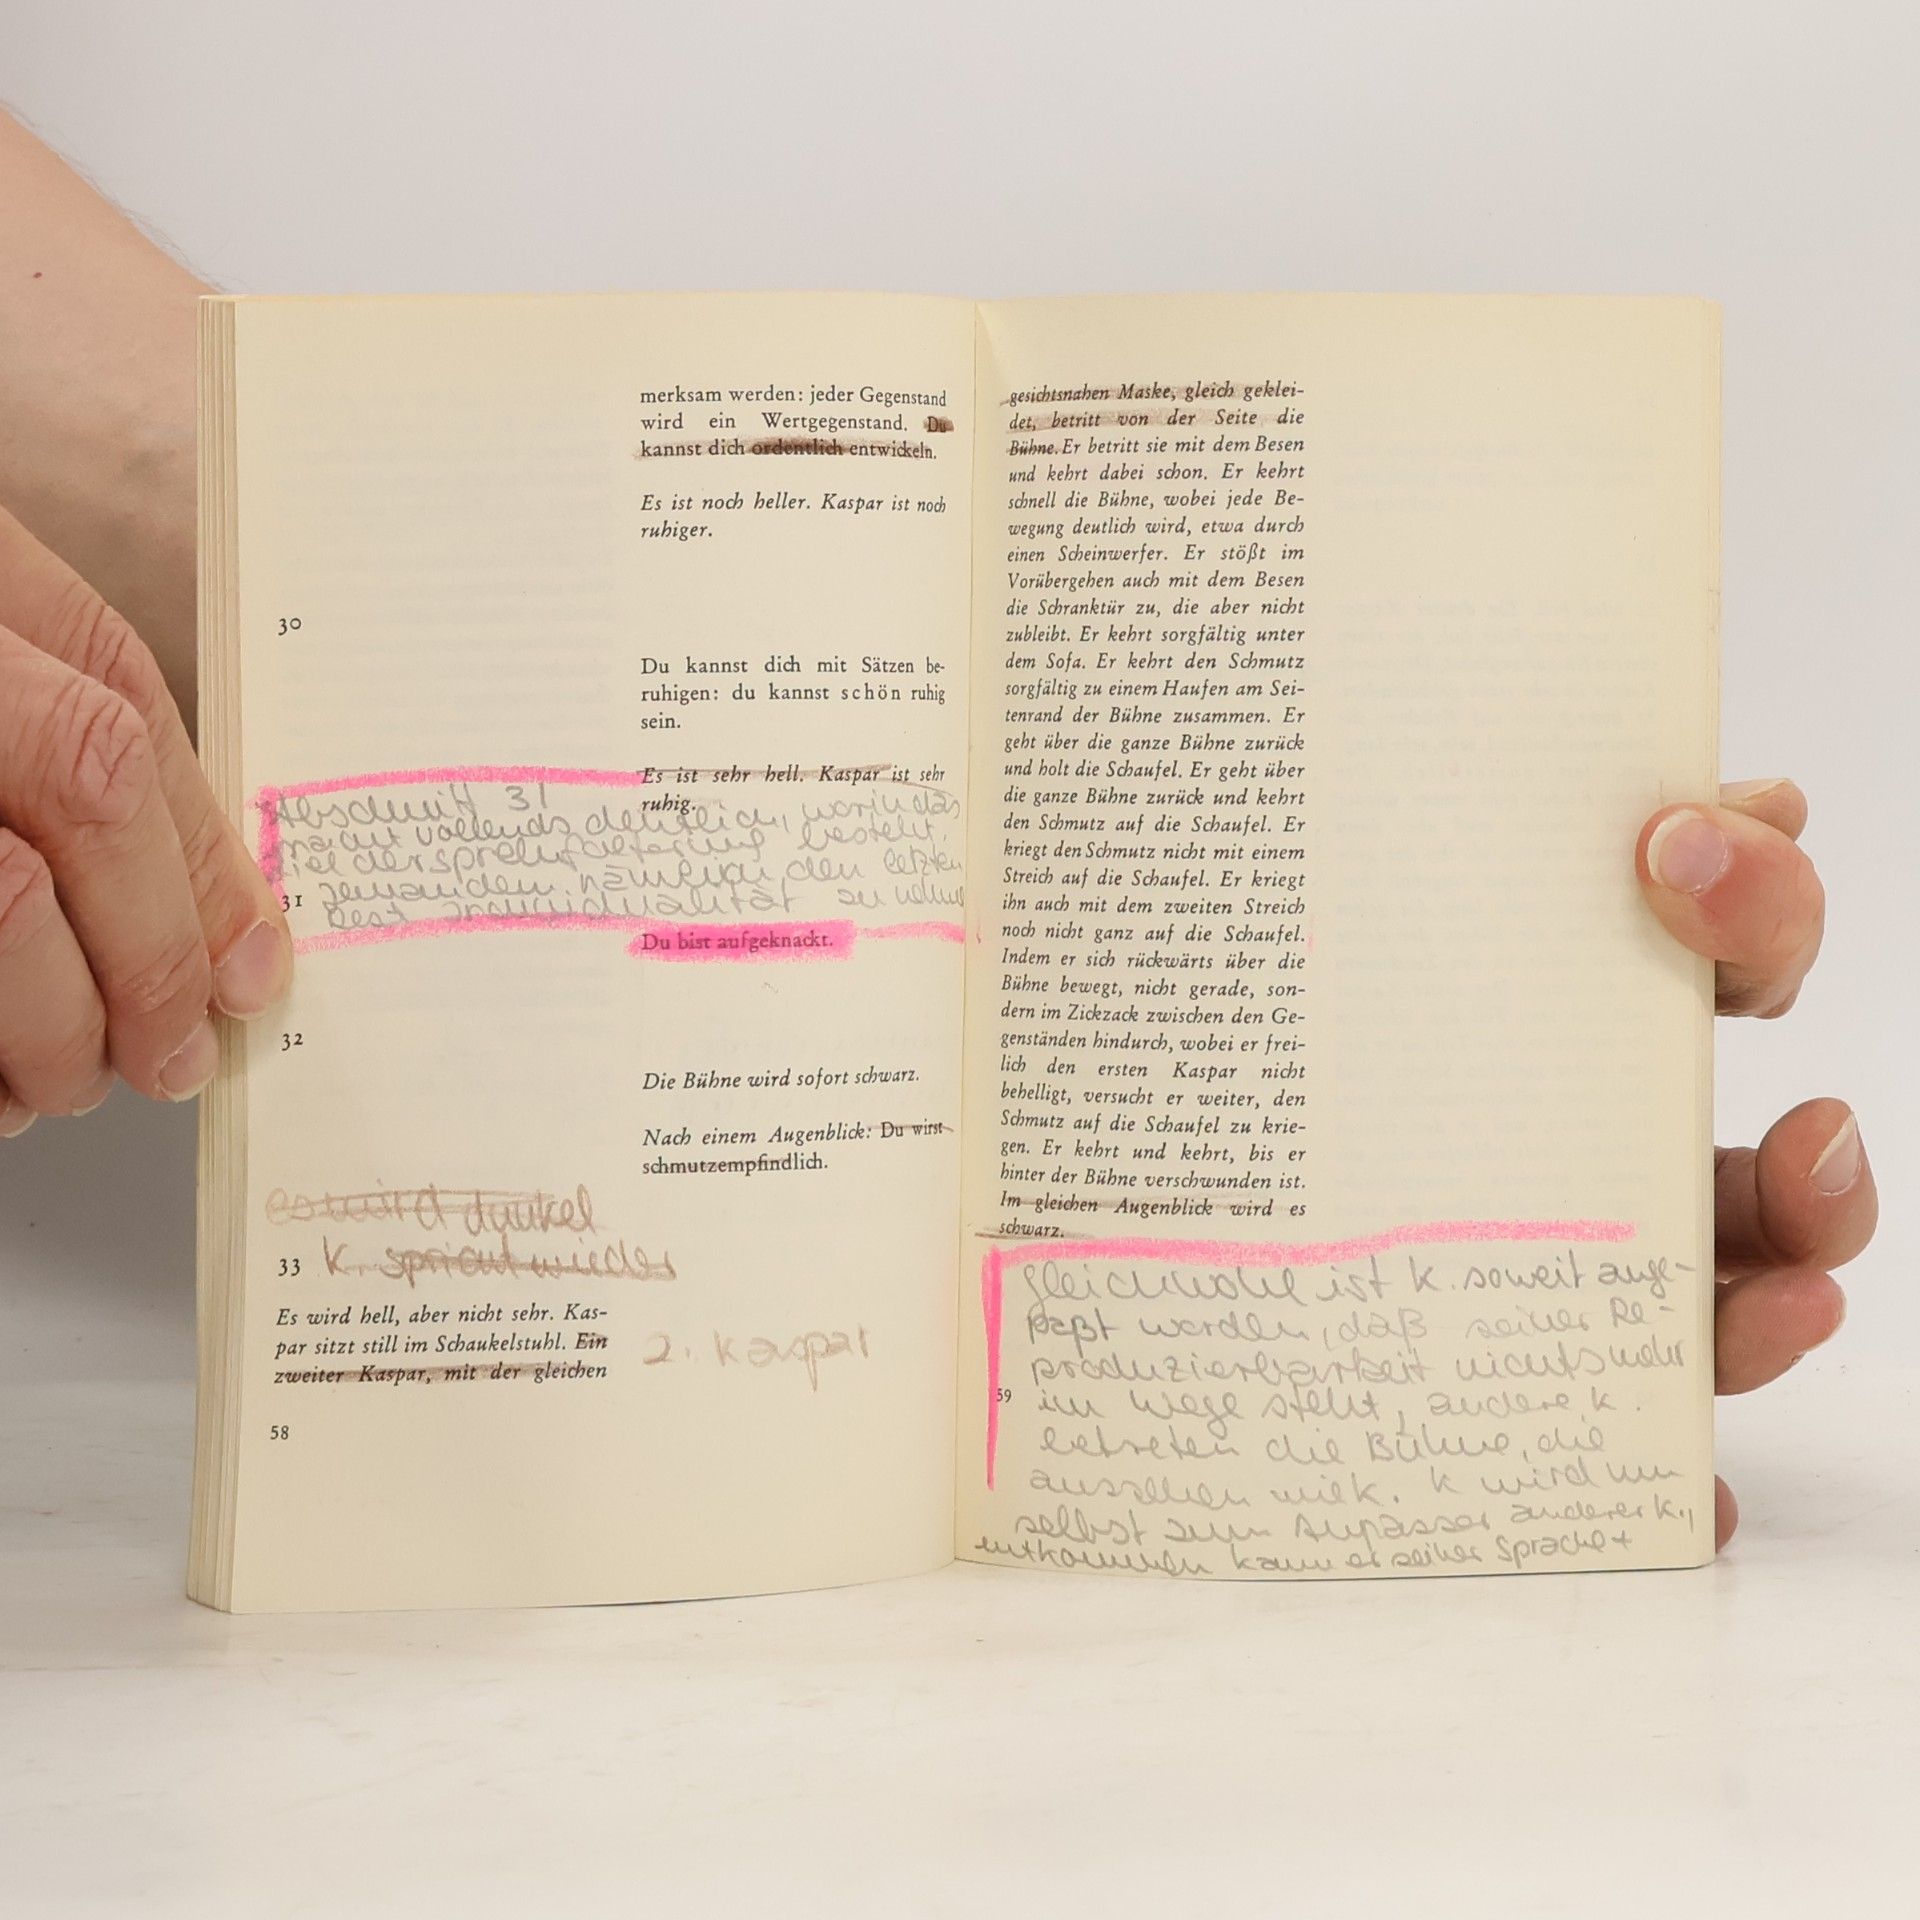 merksam werden: jeder Gegenstand
wird ein Wertgegenstand. Du
kannst dich ordentlich entwickeln.
Es ist noch heller. Kaspar ist noch
ruhiger.
30
Du kannst dich mit Sätzen be-
ruhigen: du kannst schön ruhig
sein.
Es ist sehr hell. Kaspar ist sehr
ruhig.
Abschnitt 31
macht vollends deutlich, worin das
Ziel der Sprechfolterung besteht,
jemandem nämlich den letzten
31
Rest Individualität zu nehmen
Du bist aufgeknackt.
32
Die Bühne wird sofort schwarz.
Nach einem Augenblick: Du wirst
schmutzempfindlich.
es wird dunkel
33
K. spricht wieder
Es wird hell, aber nicht sehr. Kas-
par sitzt still im Schaukelstuhl. Ein
zweiter Kaspar, mit der gleichen
2. Kaspar
58
gesichtsnahen Maske, gleich geklei-
det, betritt von der Seite die
Bühne. Er betritt sie mit dem Besen
und kehrt dabei schon. Er kehrt
schnell die Bühne, wobei jede Be-
wegung deutlich wird, etwa durch
einen Scheinwerfer. Er stößt im
Vorübergehen auch mit dem Besen
die Schranktür zu, die aber nicht
zubleibt. Er kehrt sorgfältig unter
dem Sofa. Er kehrt den Schmutz
sorgfältig zu einem Haufen am Sei-
tenrand der Bühne zusammen. Er
geht über die ganze Bühne zurück
und holt die Schaufel. Er geht über
die ganze Bühne zurück und kehrt
den Schmutz auf die Schaufel. Er
kriegt den Schmutz nicht mit einem
Streich auf die Schaufel. Er kriegt
ihn auch mit dem zweiten Streich
noch nicht ganz auf die Schaufel.
Indem er sich rückwärts über die
Bühne bewegt, nicht gerade, son-
dern im Zickzack zwischen den Ge-
genständen hindurch, wobei er frei-
lich den ersten Kaspar nicht
behelligt, versucht er weiter, den
Schmutz auf die Schaufel zu krie-
gen. Er kehrt und kehrt, bis er
hinter der Bühne verschwunden ist.
Im gleichen Augenblick wird es
schwarz.
Gleichwohl ist K. soweit ange-
paßt worden, daß seiner Re-
produzierbarkeit nichts mehr
59
im Wege steht, andere K.
betreten die Bühne, die
aussehen wie K. K wird nun
selbst zum Anpasser anderer K.,
entkommen kann er seiner Sprache